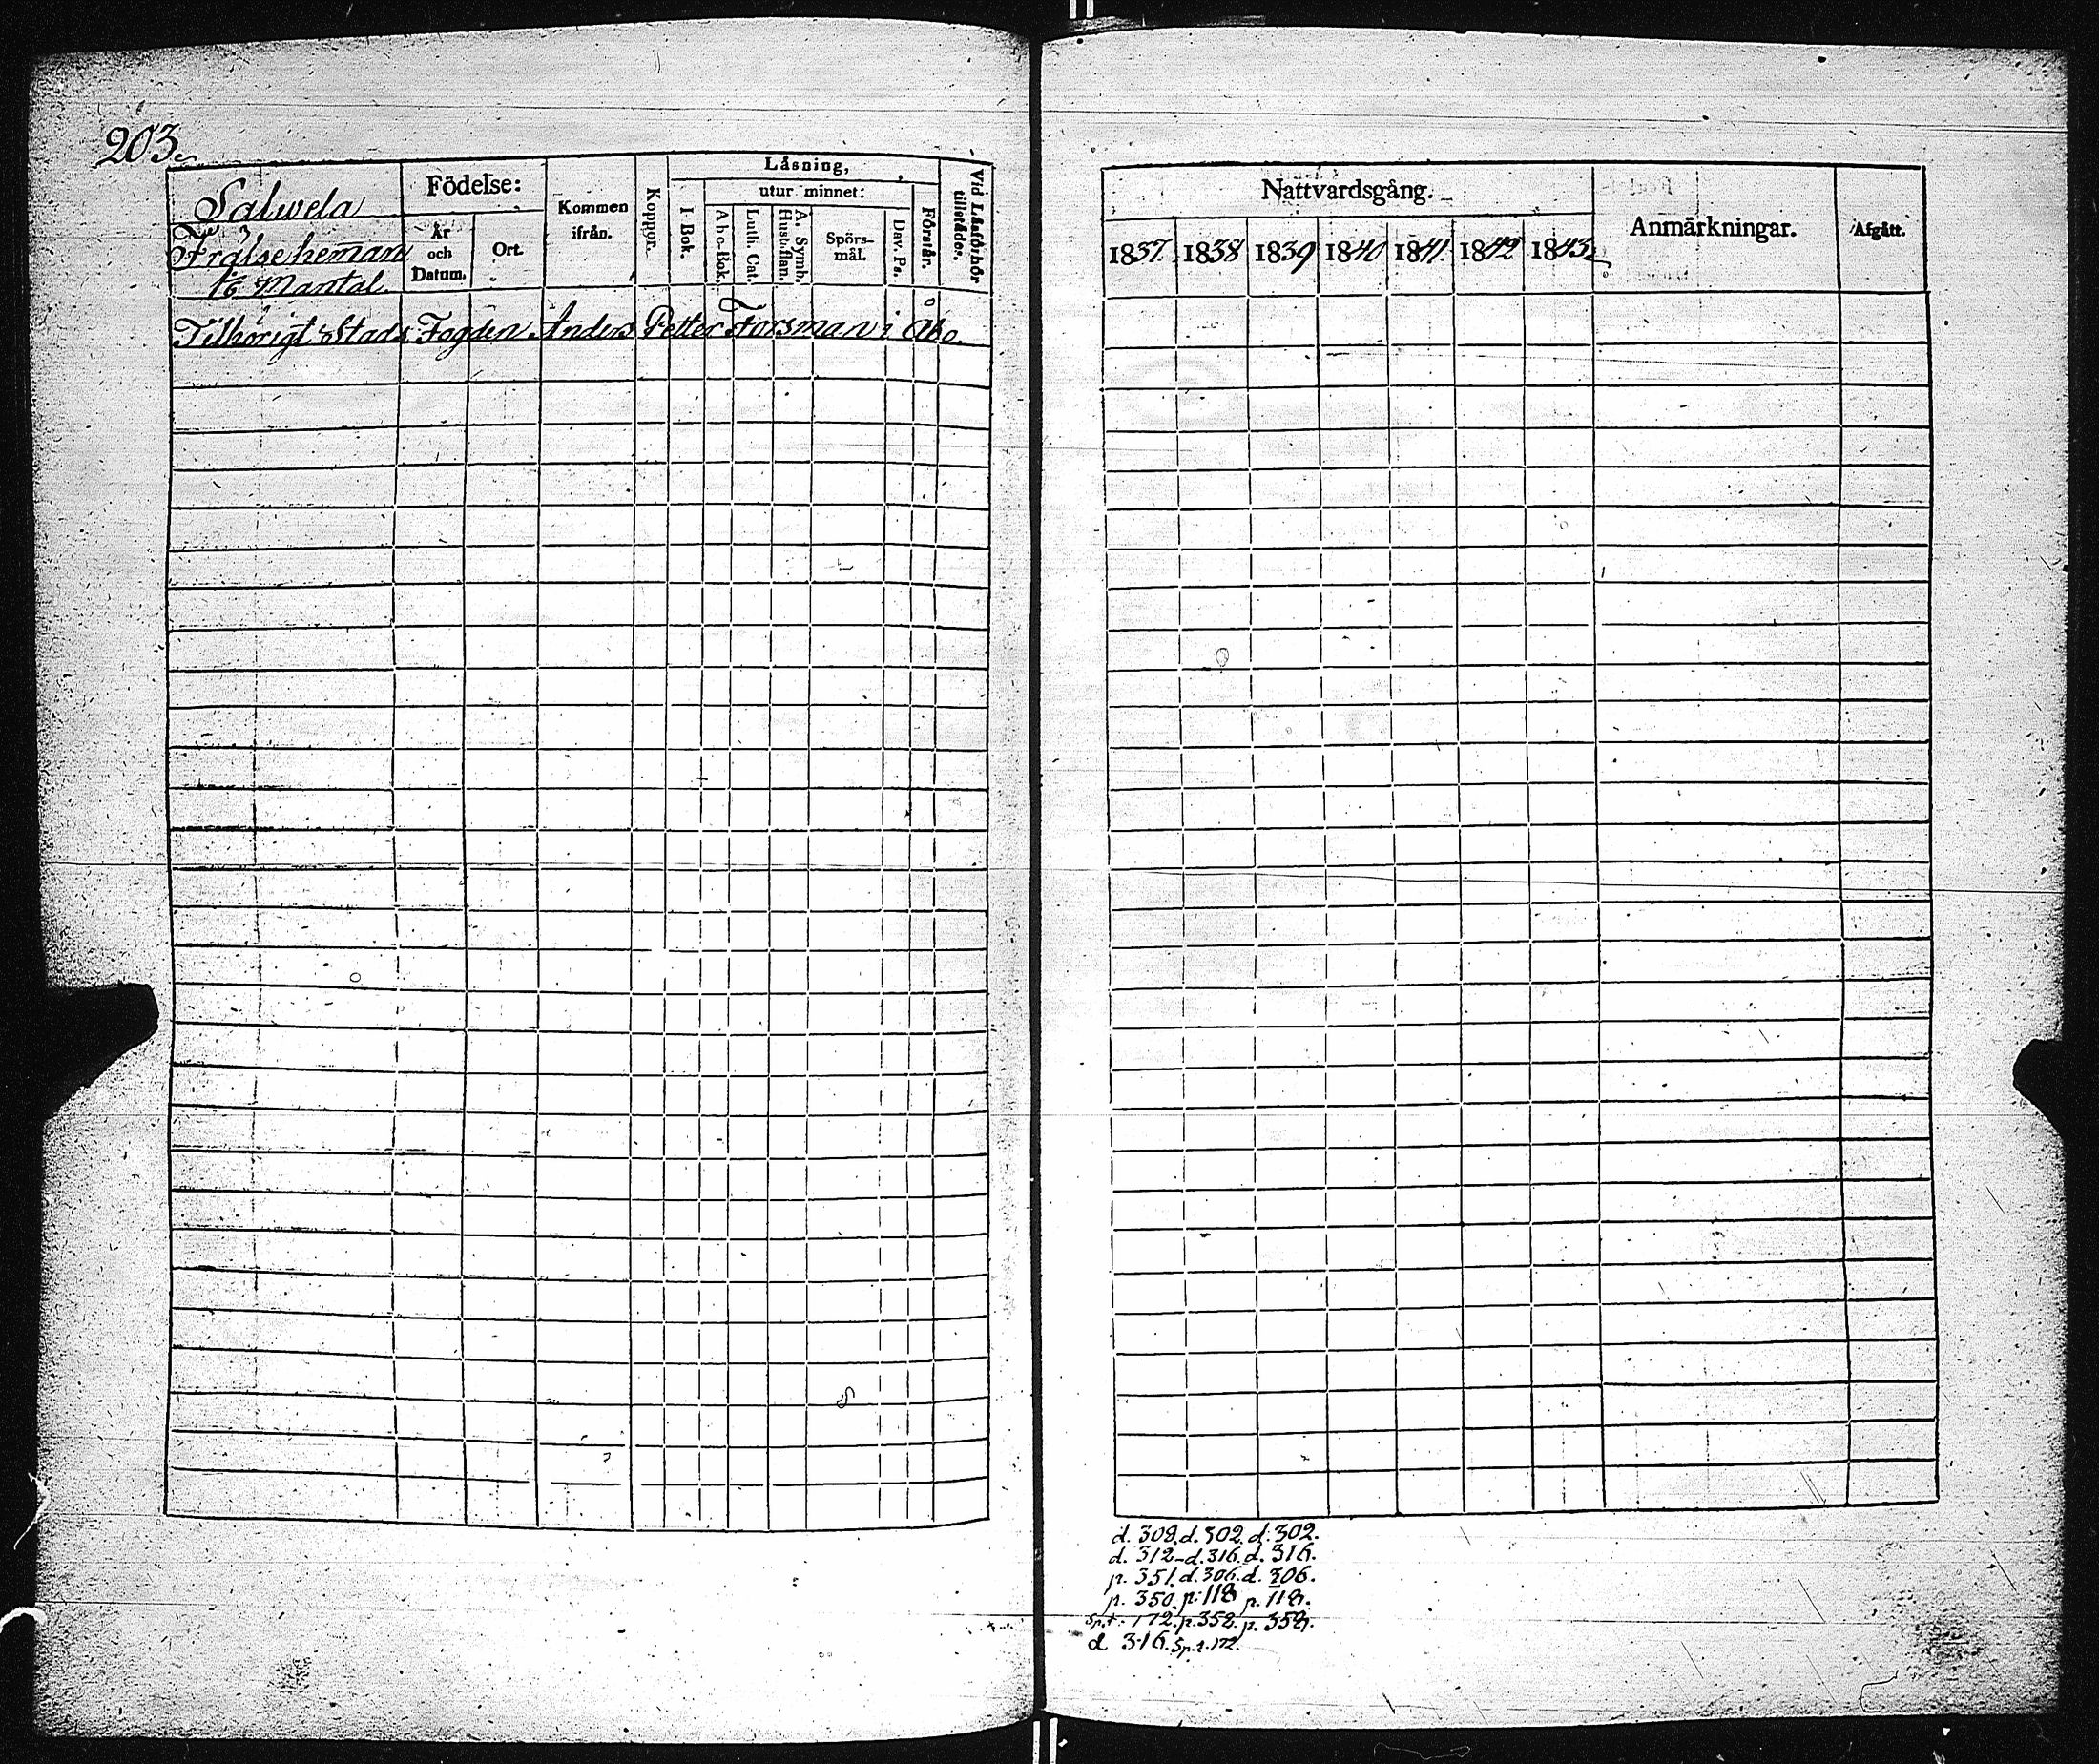 203.
Salwela
Frälseheman
1/6 Mantal
Födelse:
År och Datum.
Ort.
Kommen ifrån.
Koppor.
Läsning,
I Bok.
utur minnet:
Abc-Bok.
Luth. Cat.
A. Symb. Husb.flan.
Spörs-mål.
Dav. Ps.
Förstår.
Vid Läsförhör tillstädes.
Tilhörigt Stads Fogden Anders Petter Forsman i Åbo.
Nattvardsgång.
1837. 1838 1839 1840 1841. 1842 1843.
Anmärkningar.
Afgått.
d. 308. d. 302. d. 302.
d. 312 - d. 316. d. 316.
p. 351. d. 306. d. 306.
p. 350. p. 118 p. 118.
Sp.t. 172. p. 352. p. 352.
d 316. Sp.t. 172.